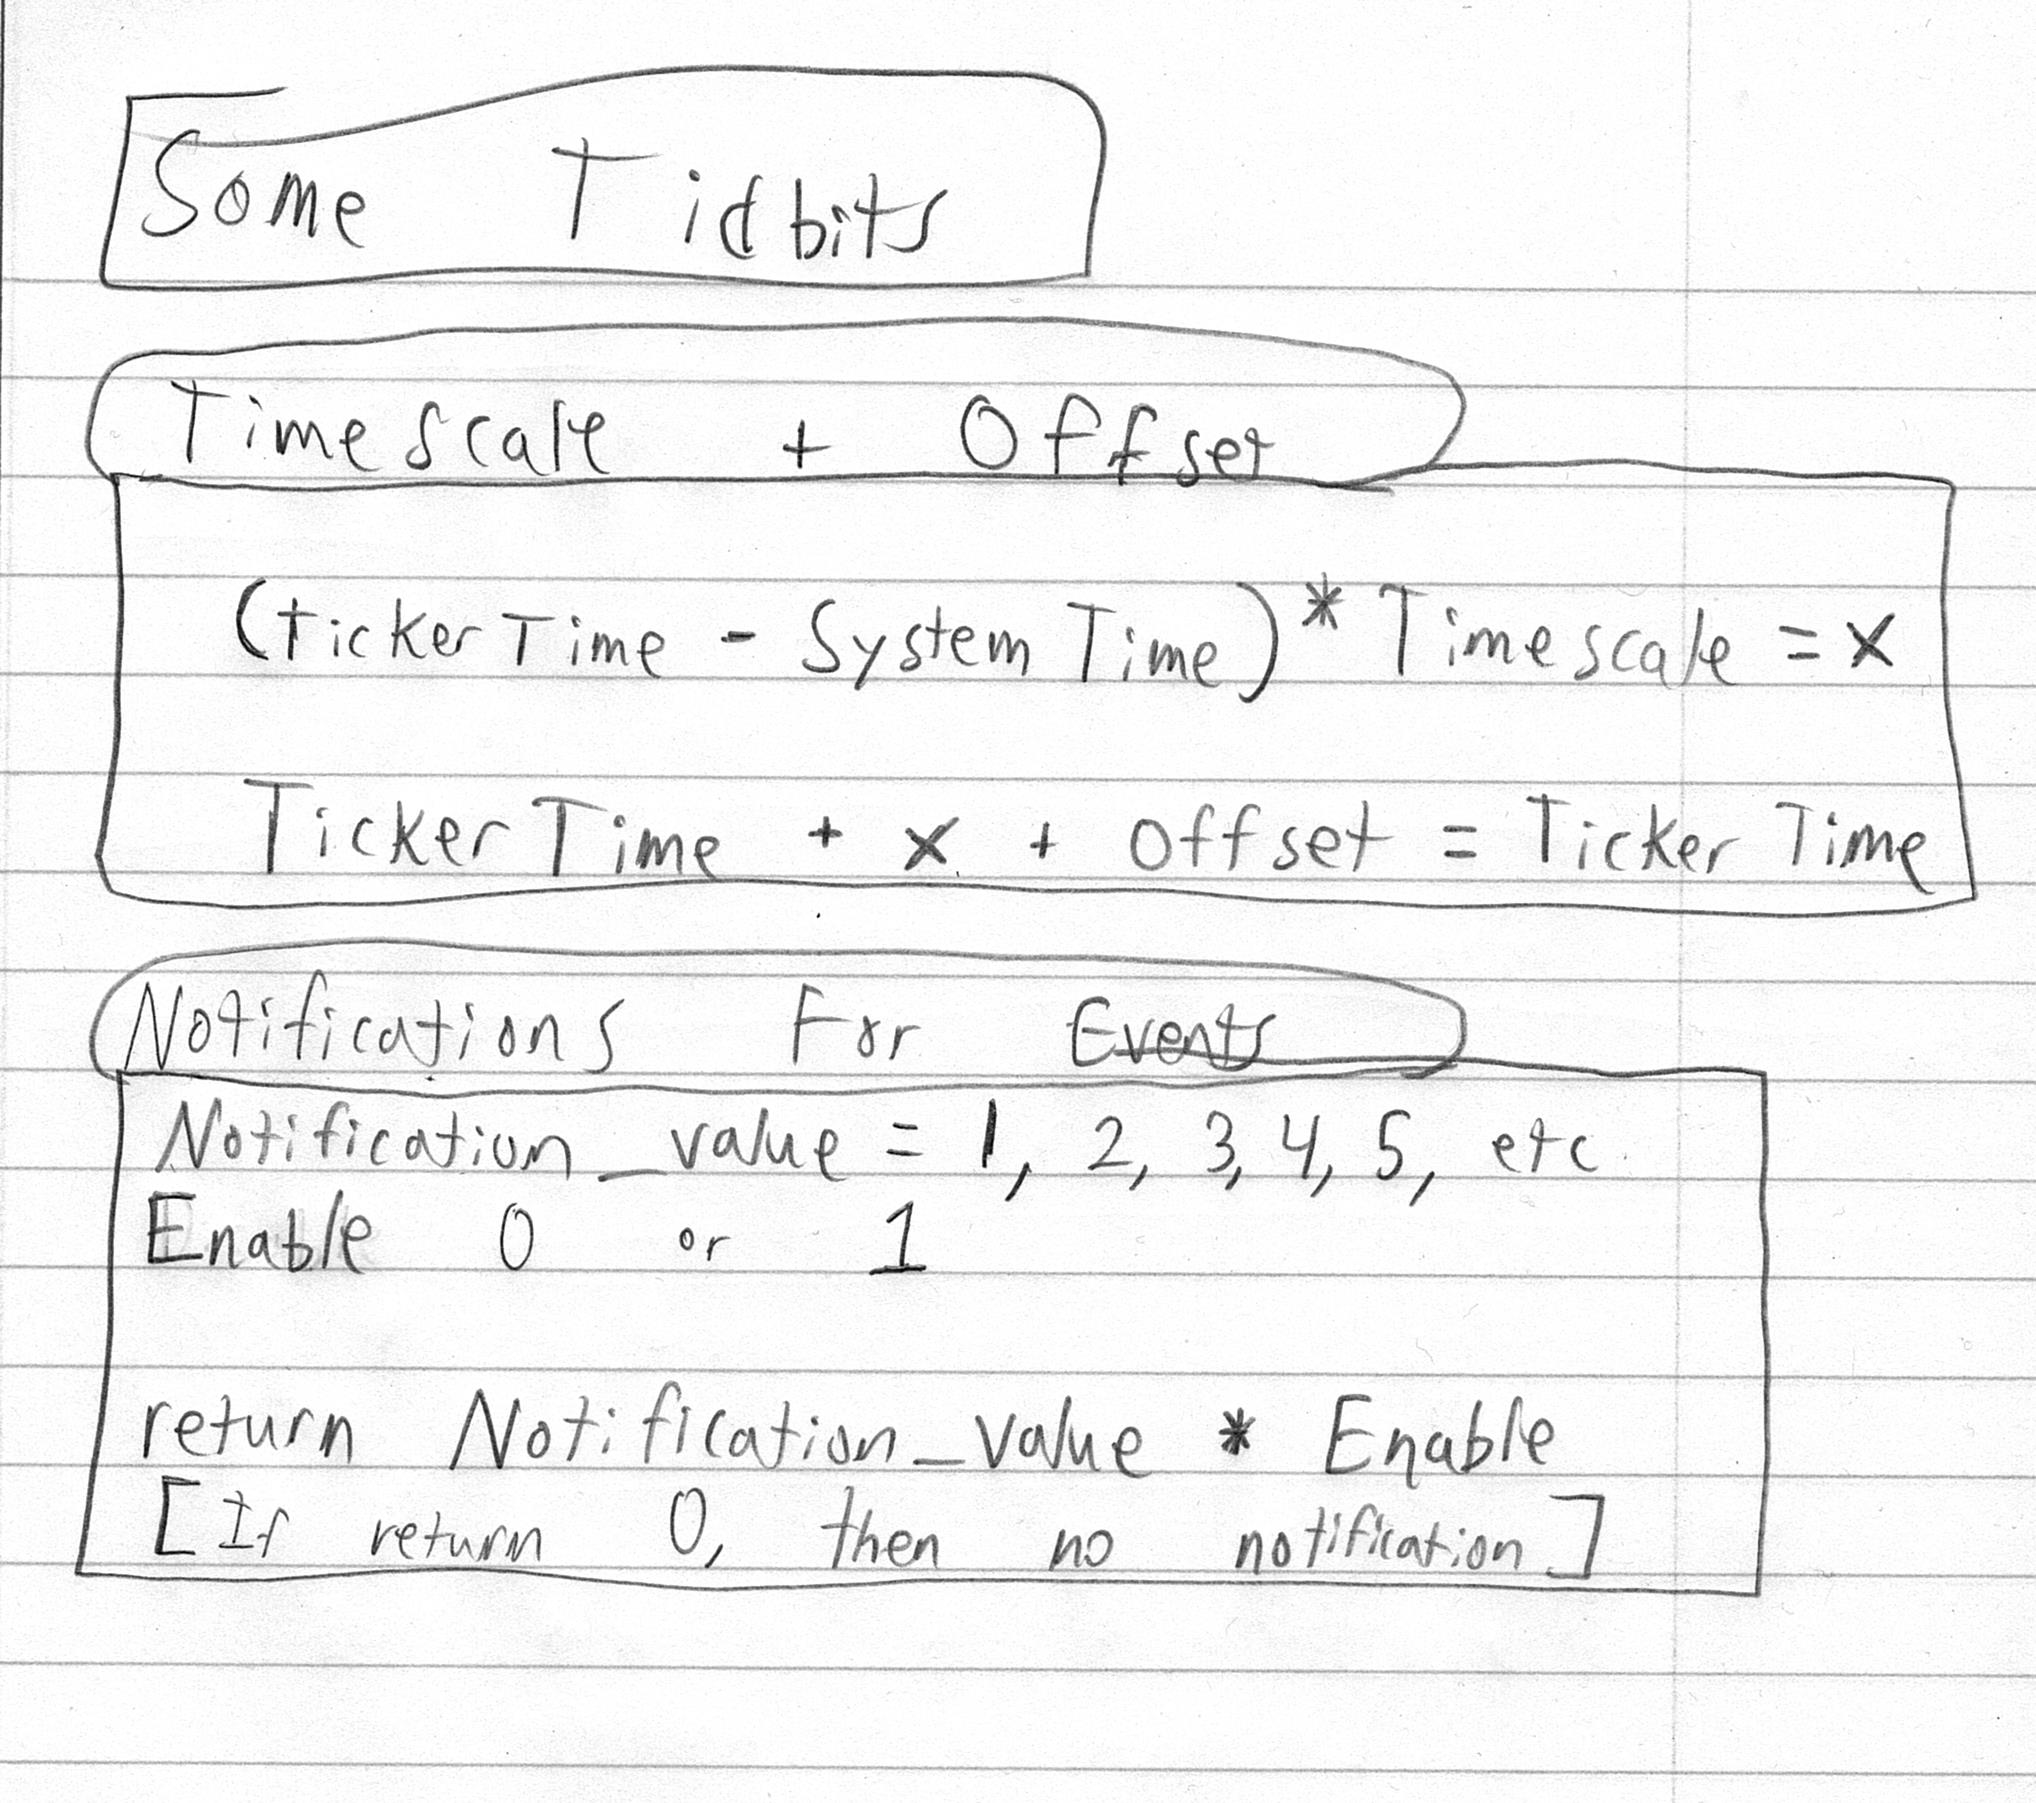 Some Tidbits
Timescale + Offset
(Ticker Time - System Time) * Timescale = x
Ticker Time + x + Offset = Ticker Time
Notifications For Events
Notification_value = 1, 2, 3, 4, 5, etc
Enable 0 or 1
return Notification_value * Enable
[If return 0, then no notification]